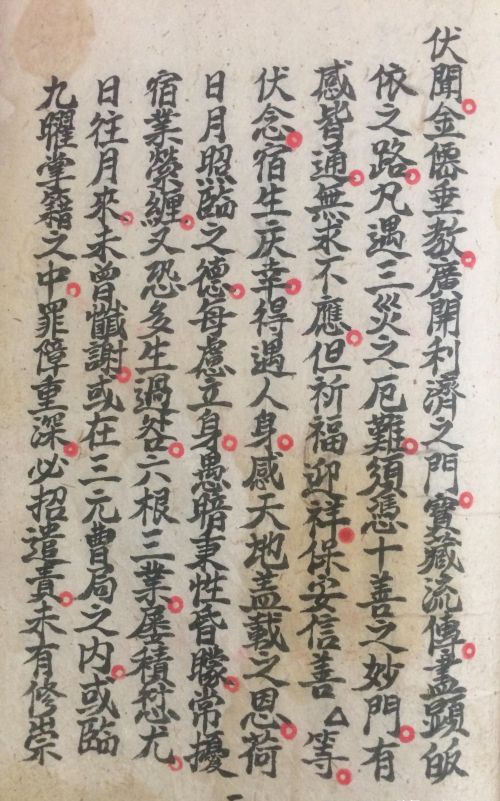 伏聞。金僊垂教。廣開利濟之門。寳藏流傳。盡顕皈
依之路。凡遇三災之厄難。須憑十善之妙門。有
感皆通。無求不應。但祈福迎祥。保安信善△等。
伏念。宿生庆幸。得遇人身。感天地盖載之恩。荷
日月照臨之德。每慮立身。愚暗秉性昏矇。常擾
宿業縈纏。又恐多生過咎。六根三業。屡積愆尤。
日往月來。未曾懺謝。或在三元曹局之内。或臨
九曜堂之中。罪障重深。必招遣責。未有修崇